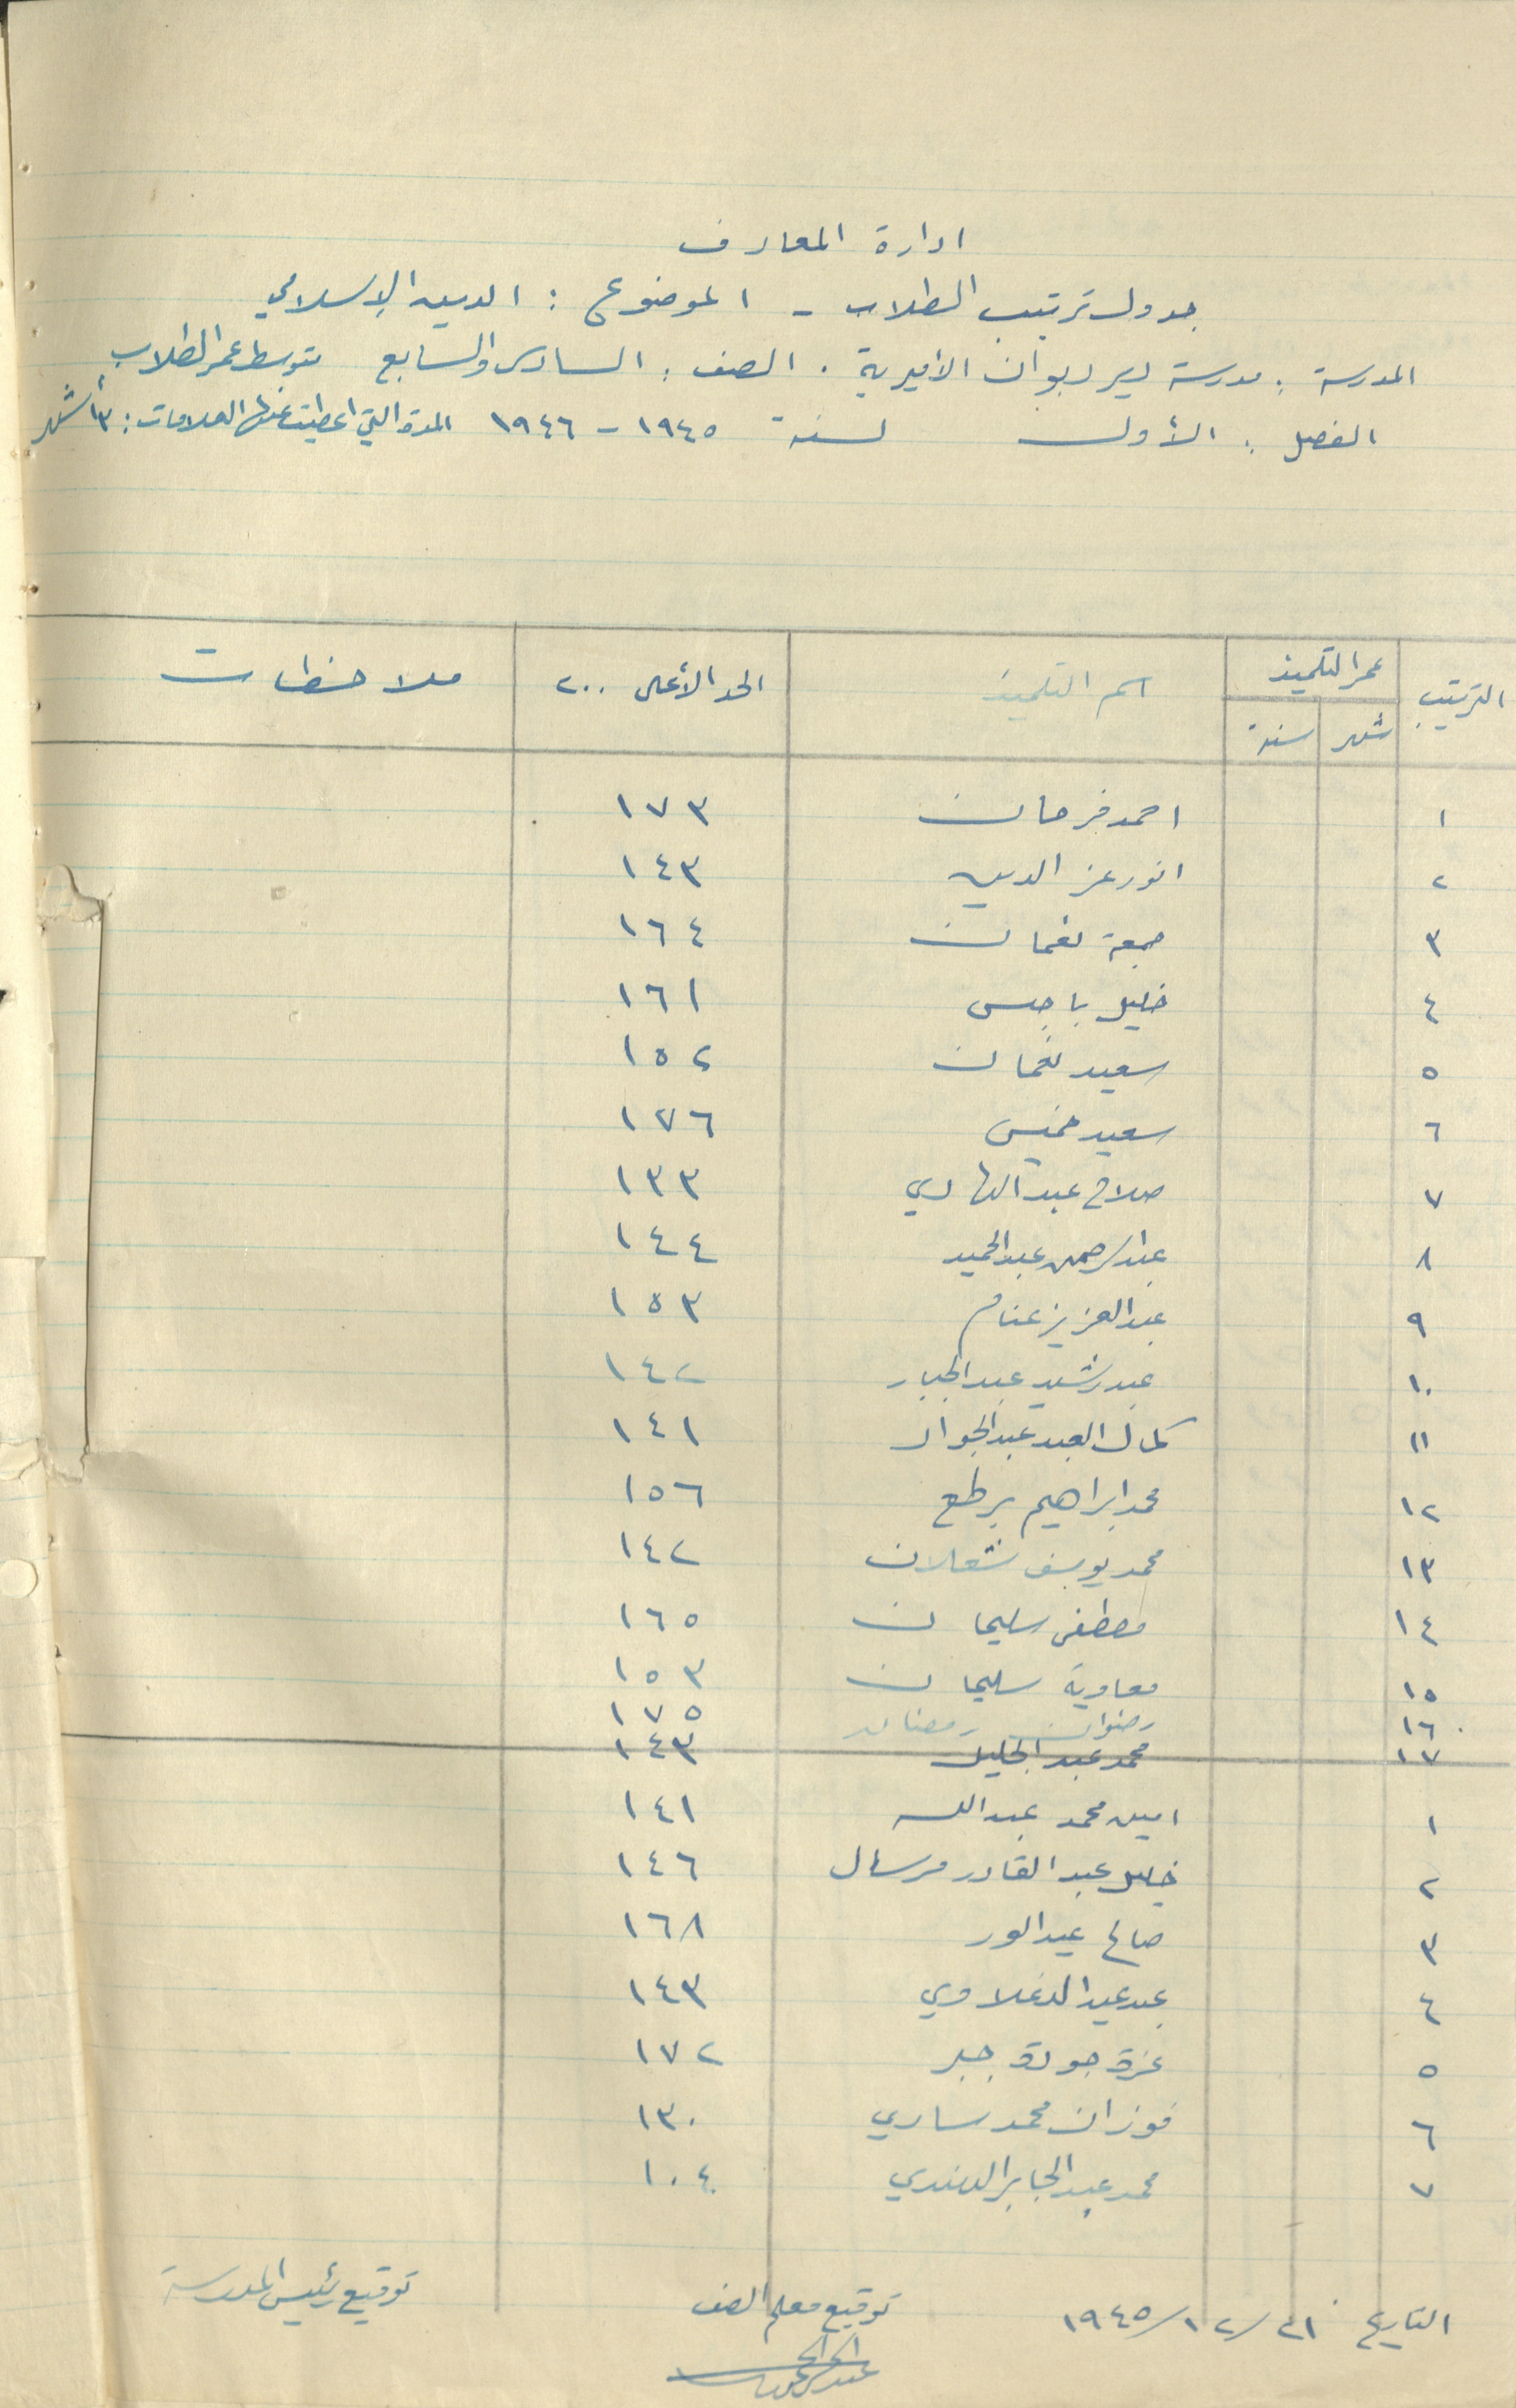 ادارة المعارف
جدول ترتيب الطلاب - الموضوع : الدين الإسلامي
المدرسة : مدرسة دير دبوان الأميرية . الصف : السادس والسابع متوسط عمر الطلاب
الفصل : الأول لسنة ١٩٤٥ - ١٩٤٦ المدة التي اعطيت عنها العلامات : ٣ أشهر
الترتيب عمر التلميذ اسم التلميذ الحد الأعلى ٢٠٠ ملاحظات
شهر سنة
١ احمد فرحان ١٧٣
٢ انور عز الدين ١٤٣
٣ جمعة نعمان ١٦٤
٤ خليل باجس ١٦١
٥ سعيد نعمان ١٥٢
٦ سعيد خميس ١٧٦
٧ صلاح عبد الهادي ١٣٣
٨ عبد الرحمن عبد الحميد ١٤٤
٩ عبد العزيز غنام ١٥٣
١٠ عبد رشيد عبد الجبار ١٤٢
١١ كمال العبد عبد الجواد ١٤١
١٢ محمد ابراهيم برطع ١٥٦
١٣ محمد يوسف شعلان ١٤٢
١٤ مصطفى سليمان ١٦٥
١٥ معاوية سليمان ١٥٣
١٦ رضوان رمضان ١٧٥
١٧ محمد عبد الجليل ١٤٣
١ امين محمد عبد الله ١٤١
٢ خليل عبد القادر مرسال ١٤٦
٣ صالح عيد الور ١٦٨
٤ عبد عيد الدغلاوي ١٤٣
٥ عزة جودة جبر ١٧٢
٦ فوزان محمد ساري ١٣٠
٧ محمد عبد الجابر الهندي ١٠٤
التاريخ ٢١/١٢/١٩٤٥ توقيع معلم الصف توقيع رئيس المدرسة